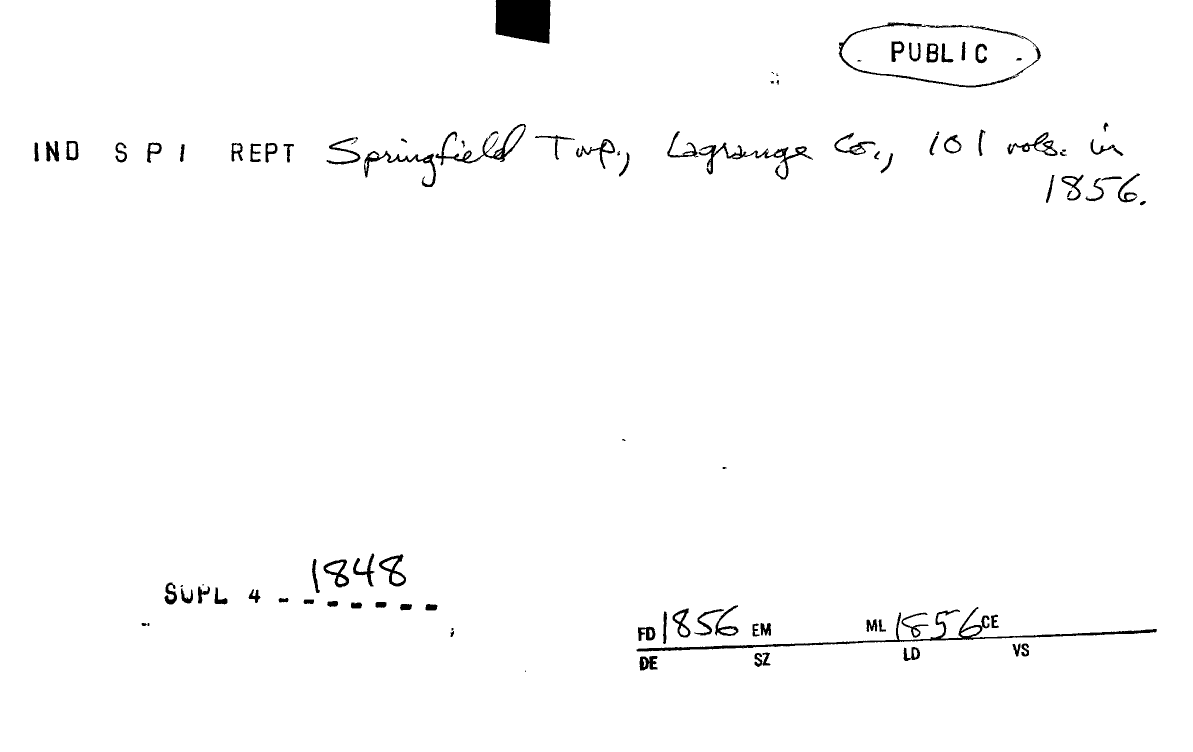 PUBLIC
IND S P I REPT Springfield Twp., Lagrange Co., 101 vols. in
1856.
SUPL 4 - 1848
FD 1856 EM ML 1856 CE
DE SZ LD VS